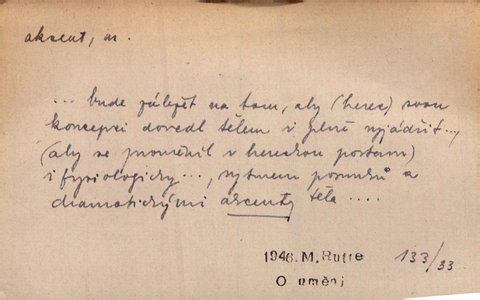 akcent, m.
... bude záležet na tom, aby (herec) svou
koncepci dovedl tělem i plně vyjádřit ...,
(aby se proměnil v hereckou postavu)
i fysiologicky ..., rytmem posunků a
dramatickými akcenty těla ....
1946. M. Rutte 133/33
O umění